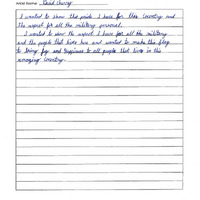 Artist Name:
I wanted to show the pride I have for this Country and
The respect for all the military personal.
I wanted to show the respect I have for all the military
and the people that lives here and wanted to make this flag
to bring joy and happiness to all people that lives in this
amazing Country.